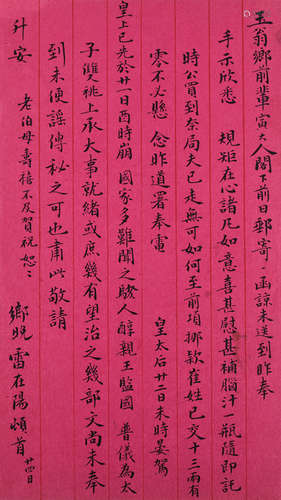 玉翁鄉前輩寅大人閣下前日郵寄一函諒未達到昨奉
手示欣悉 規矩在心諸凡如意喜甚慰甚補腦汁一瓶隨即託
時公買到奈局夫已走無可如何至前項挪款崔姓已交十三兩有
零不必懸念昨道署奉電 皇太后廿二日未時晏駕
皇上已先於廿一日酉時崩 國家多難聞之駭人醇親王監國 溥儀為太
子雙祧上承大事就緒或庶幾有望治之幾部文尚未奉
到未便謠傳秘之可也肅此敬請
升安
老伯母壽禧不及賀祝恕恕
鄉晚雷在陽頓首 廿四日